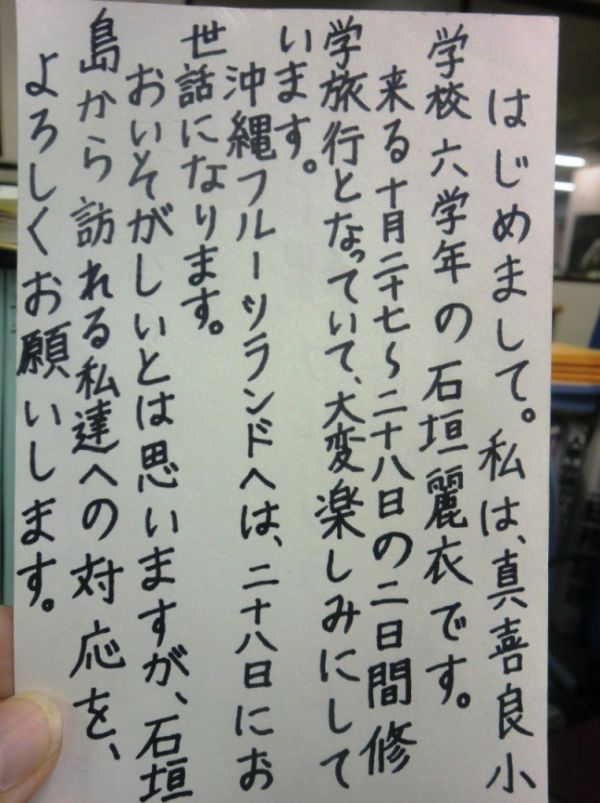 はじめまして。私は、真喜良小
学校六学年の石垣麗衣です。
来る十月二十七～二十八日の二日間修
学旅行となっていて、大変楽しみにして
います。
沖縄フルーツランドへは、二十八日にお
世話になります。
おいそがしいとは思いますが、石垣
島から訪れる私達への対応を、
よろしくお願いします。